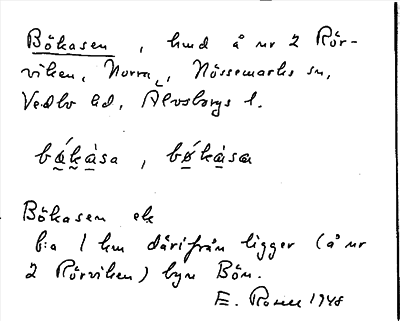 Bökasen, hmd å nr 2 Rör-
viken, Norra, Nössemarks sn,
Vedbo hd, Älvsborgs l.
bø̀kàsa, bø̀kàsa
Bökasen ek
f:a 1 km därifrån ligger (å nr
2 Rörviken) byn Bön.
E. 1948